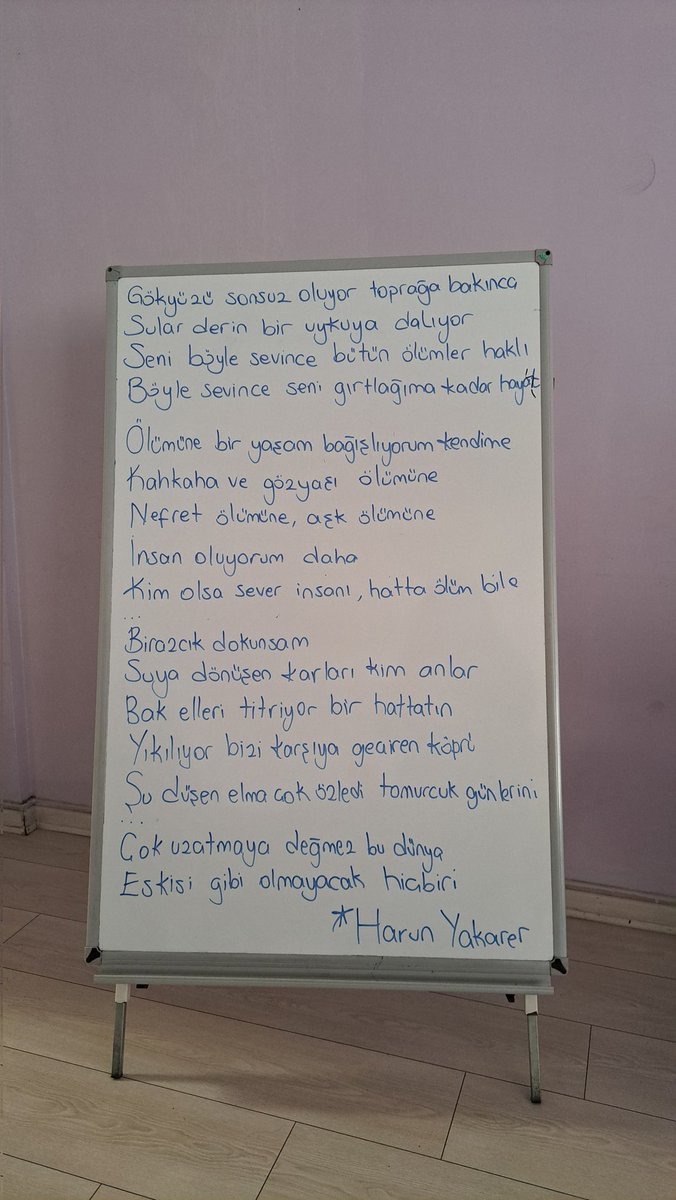 Gökyüzü sonsuz oluyor toprağa bakınca
Sular derin bir uykuya dalıyor
Seni böyle sevince bütün ölümler haklı
Böyle sevince seni gırtlağıma kadar hayat
Ölümüne bir yaşam bağışlıyorum kendime
Kahkaha ve gözyaşı ölümüne
Nefret ölümüne, aşk ölümüne
İnsan oluyorum daha
Kim olsa sever insanı, hatta ölüm bile
...
Birazcık dokunsam
Suya dönüşen karları kim anlar
Bak elleri titriyor bir hattatın
Yıkılıyor bizi karşıya geçiren köprü
Şu düşen elma çok özledi tomurcuk günlerini
...
Çok uzatmaya değmez bu dünya
Eskisi gibi olmayacak hiçbiri
*Harun Yakarer